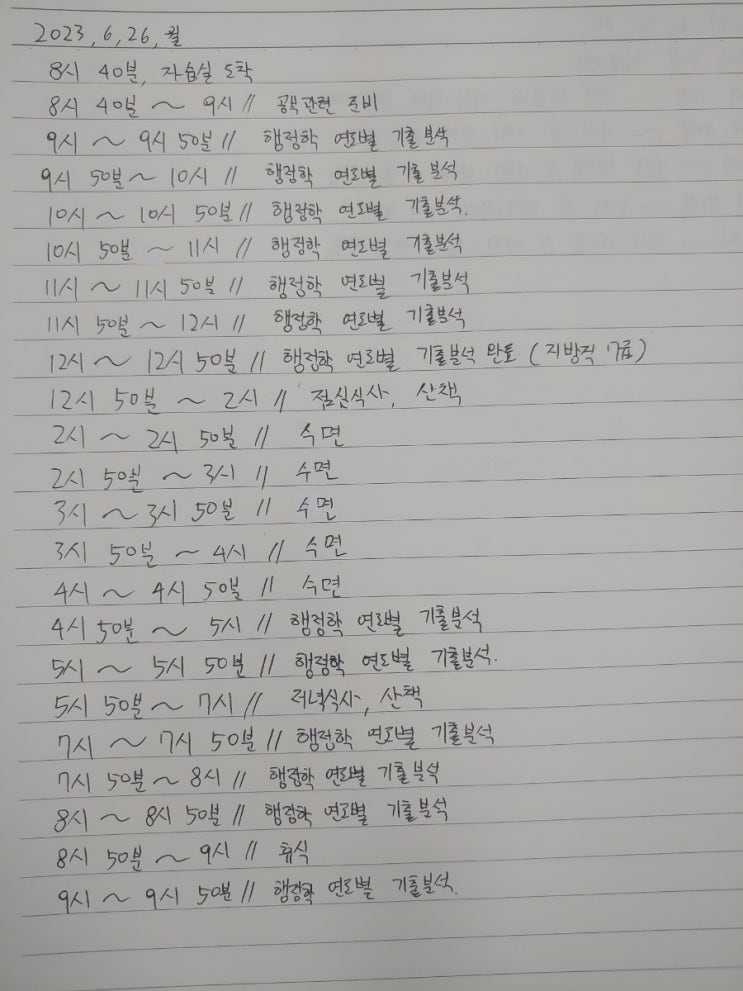 2023, 6, 26, 월
8시 40분, 자습실 도착
8시 40분 ~ 9시 // 공부관련 준비
9시 ~ 9시 50분 // 행정학 연도별 기출분석
9시 50분 ~ 10시 // 행정학 연도별 기출분석
10시 ~ 10시 50분 // 행정학 연도별 기출분석.
10시 50분 ~ 11시 // 행정학 연도별 기출분석
11시 ~ 11시 50분 // 행정학 연도별 기출분석
11시 50분 ~ 12시 // 행정학 연도별 기출분석
12시 ~ 12시 50분 // 행정학 연도별 기출분석 완료 (지방직 7급)
12시 50분 ~ 2시 // 점심식사, 산책
2시 ~ 2시 50분 // 수면
2시 50분 ~ 3시 // 수면
3시 ~ 3시 50분 // 수면
3시 50분 ~ 4시 // 수면
4시 ~ 4시 50분 // 수면
4시 50분 ~ 5시 // 행정학 연도별 기출분석
5시 ~ 5시 50분 // 행정학 연도별 기출분석.
5시 50분 ~ 7시 // 저녁식사, 산책
7시 ~ 7시 50분 // 행정학 연도별 기출분석
7시 50분 ~ 8시 // 행정학 연도별 기출분석
8시 ~ 8시 50분 // 행정학 연도별 기출분석
8시 50분 ~ 9시 // 휴식
9시 ~ 9시 50분 // 행정학 연도별 기출분석.